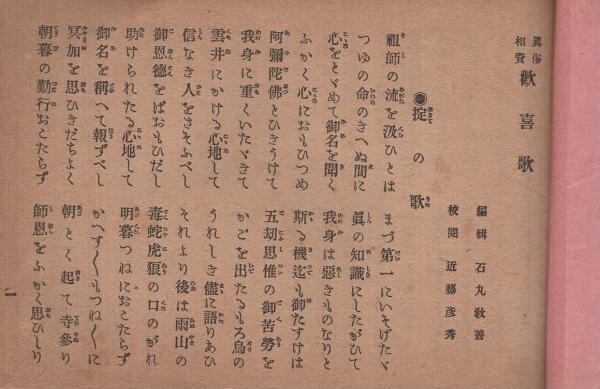 眞俗相資 歡喜歌
編輯 石丸敎善
校閲 近藤彦秀
●掟の歌
祖師の流を汲ひとは まづ第一にいそげたゞ
つゆの命のきへぬ間に 眞の知識にしたがひて
心をとゞめて御名を聞く 我身は惡きものなりと
ふかく心におもひつめ 斯る機迄も御たすけは
阿彌陀佛とひきうけて 五刧思惟の御苦勞を
我身に重くいたゞきて かごを出たるもろ鳥の
雲井にかける心地して うれしき儘に語りあひ
信なき人をさそふべし それより後は雨山の
御恩德をばおもひだし 毒蛇虎狼の口のがれ
助けられたる心地して 明暮つねにおこたらず
御名を稱へて報ずべし かへす〲もつね〲に
冥加を思ひきだちよく 朝とく起て寺參り
朝暮の勤行おこたらず 師恩をふかく思ひしり
一